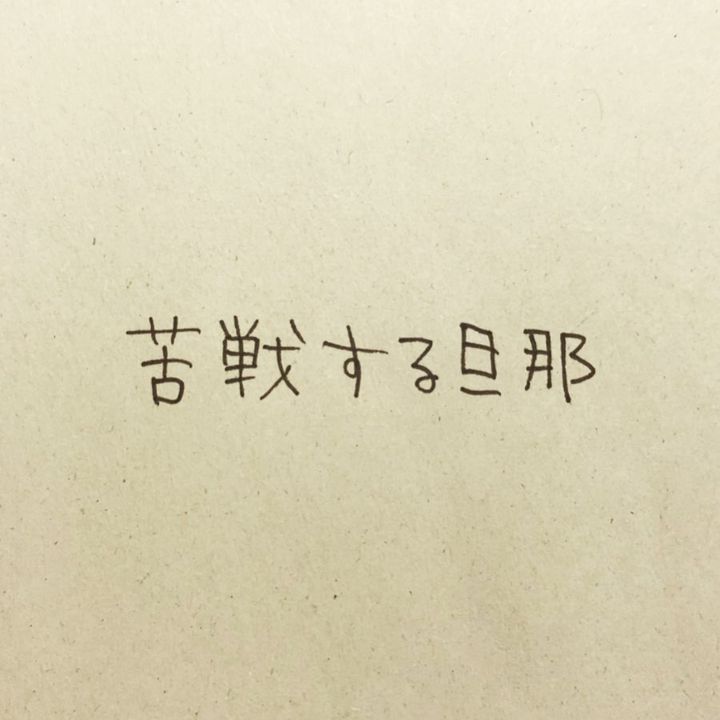 苦戦する旦那